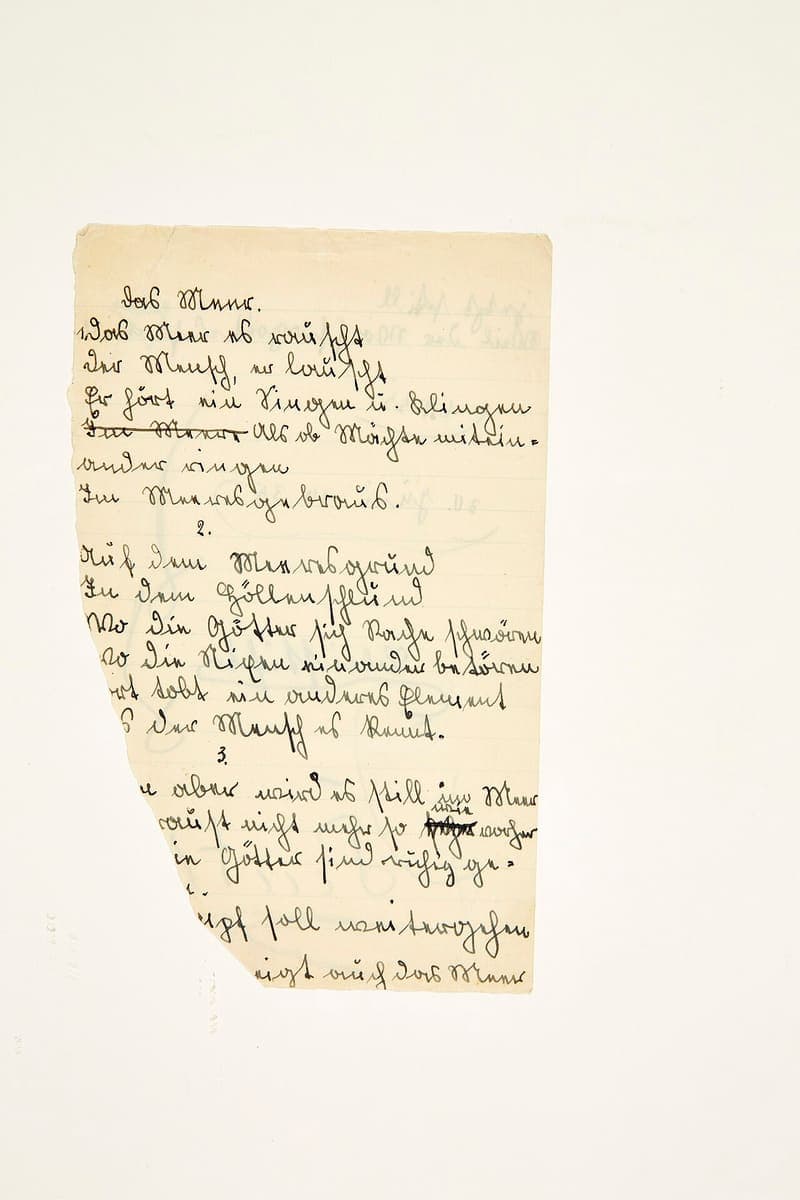 Das Meer.
Das Meer es rauscht
Der Mensch, er lauscht
Er hört ein Singen u. Klingen
Im Meere Als ob Mächte mitein-
ander ringen
Im Meeresgebraus.
2.
Auf dem Meeresgrund
In dem Höllenschlund
Wo die Götter sich Rache schwören
Wo die Nixen einander betören
ort tobt ein anderes Element
s der Mensch es kennt.
3.
n aber wird es still im Meer
wie
raust nicht mehr so vorher
ie Götter sind ruhig ge-
mpf soll weitergehen
eigt auch das Meer